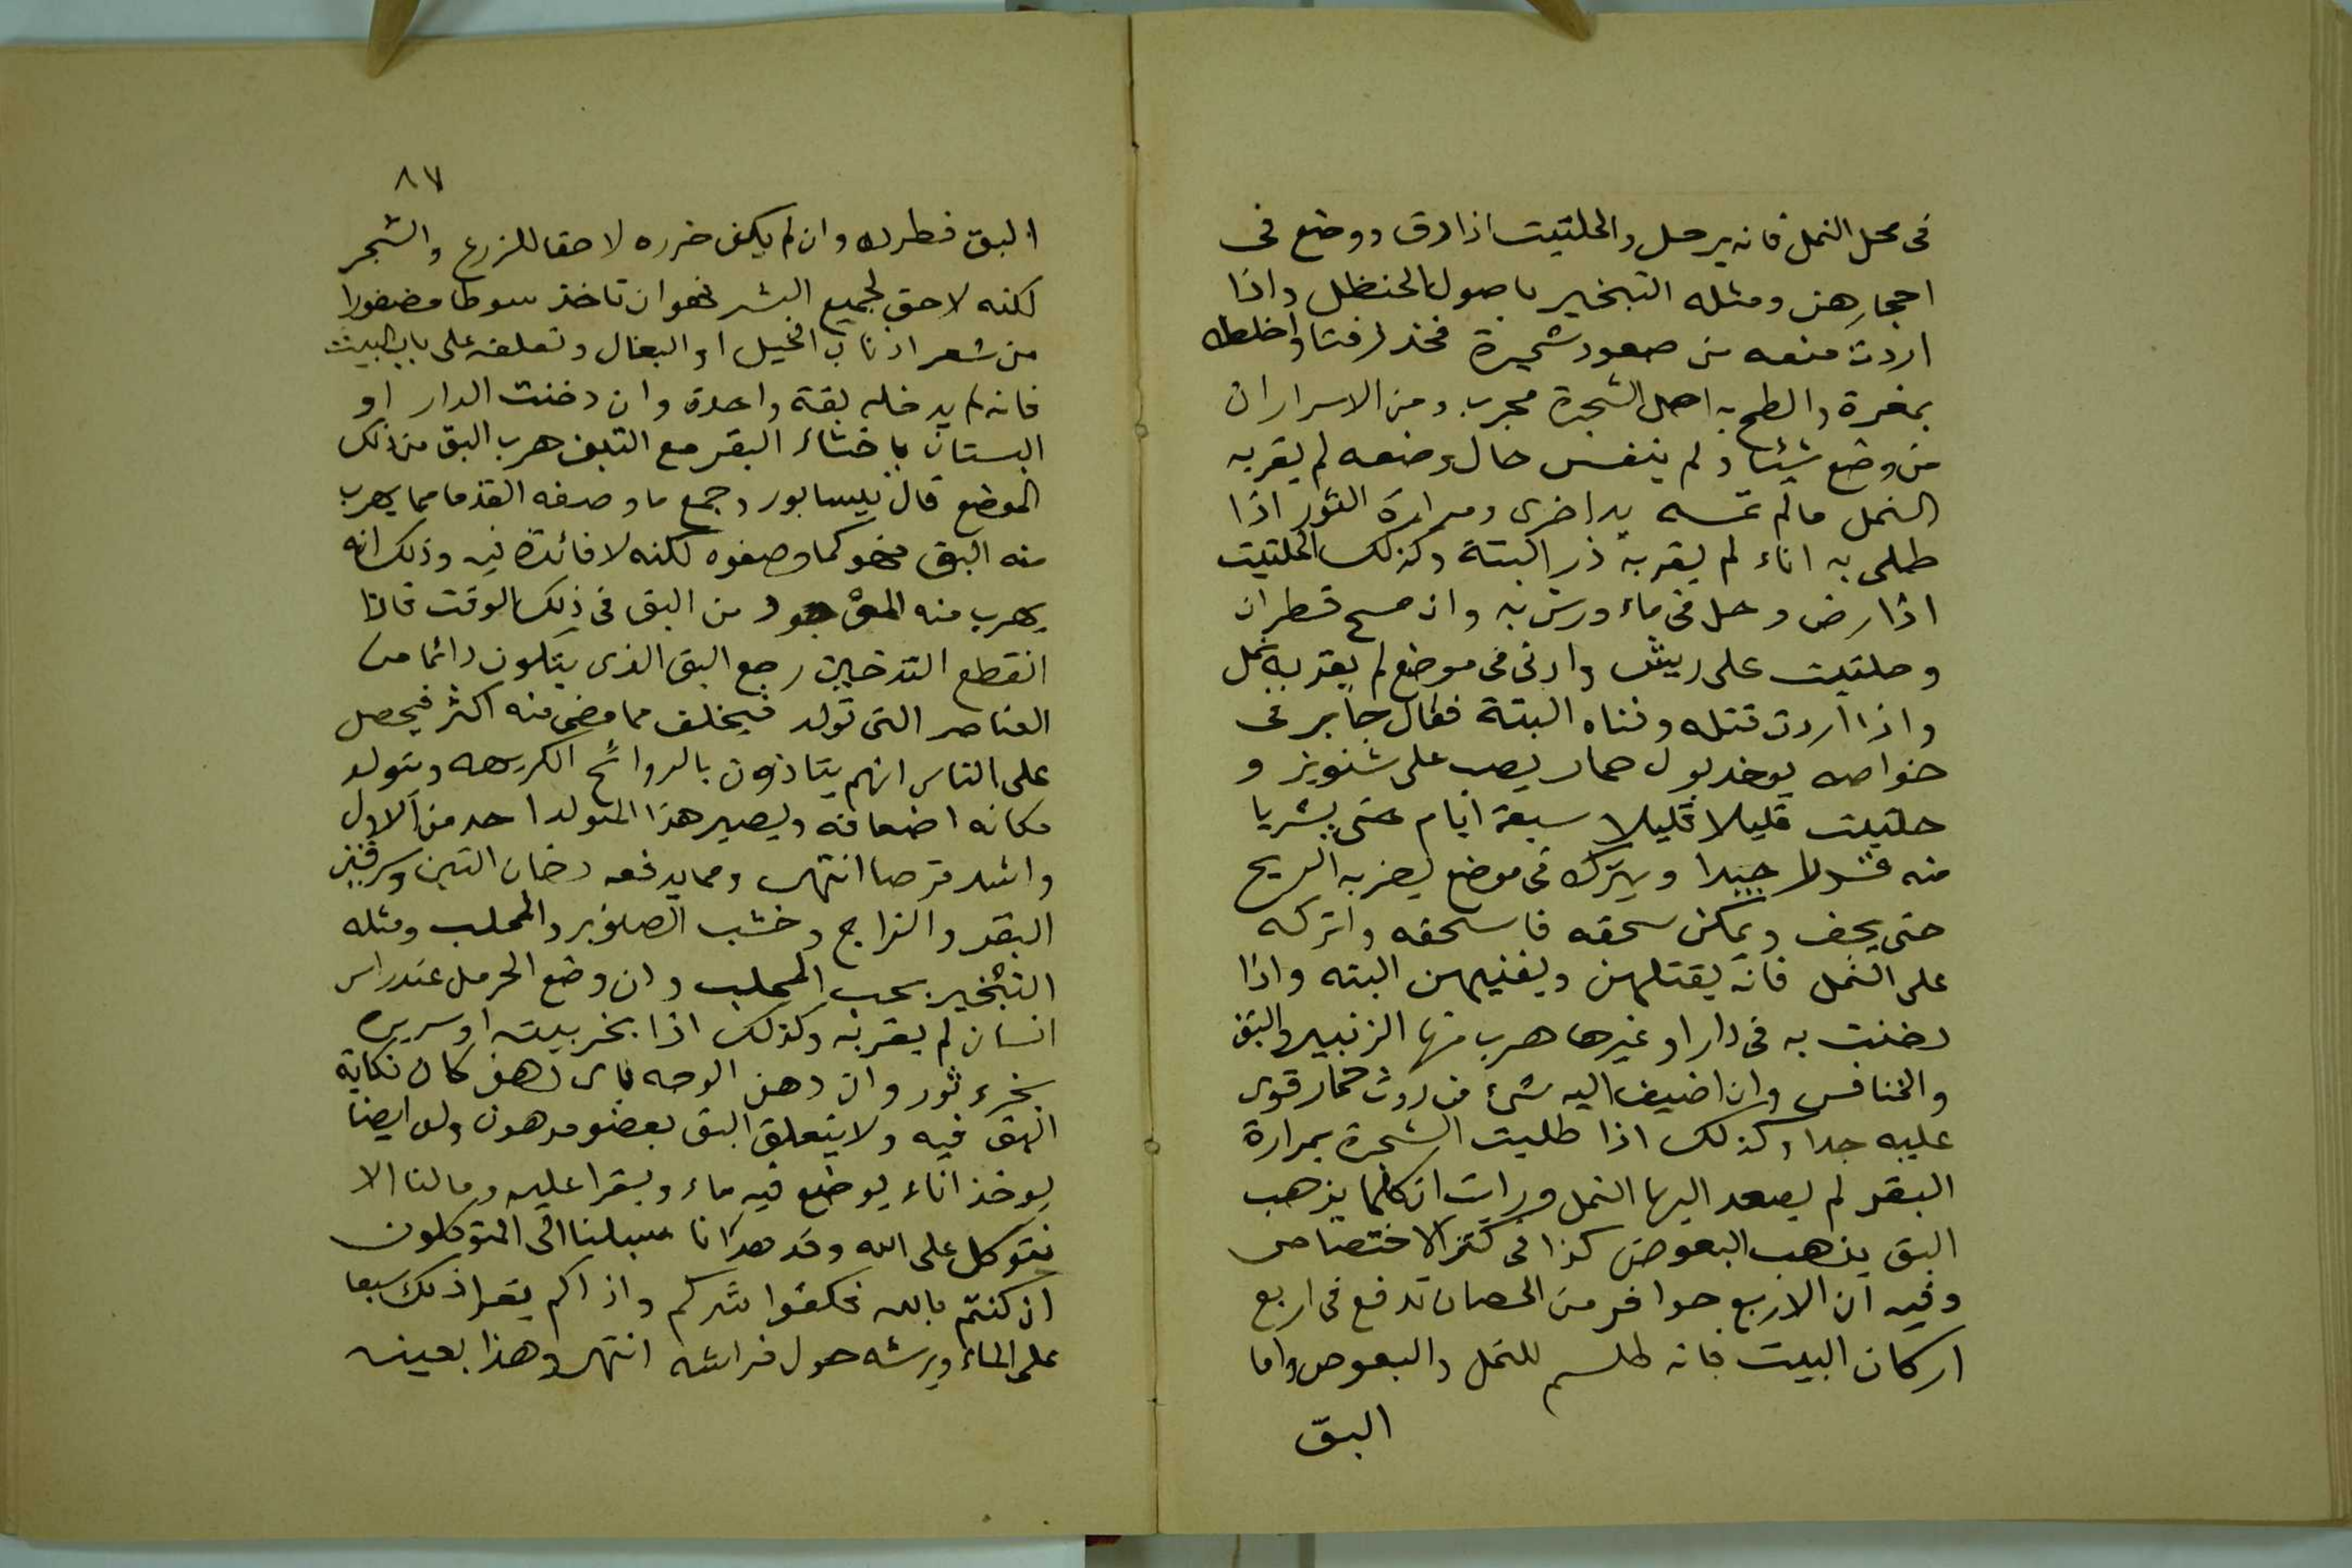 فى محل النمل فانه يرحل والحلتيت اذا دق ووضع فى
احجارهن ومثله التبخير باصول الحنظل واذا
اردت منعه من صعود شجرة فخذ زفتا واخلطه
بمغرة والطخ به اصل الشجرة مجرب ومن الاسرار ان
من وضع شيئا ولم يتنفس حال وضعه لم يقربه
النمل مالم تمسه يد اخرى ومرارة الثور اذا
طلى به اناء لم يقربه ذر البتة وكذلك الحلتيت
اذا رض وحل فى ماء ورش به وان مسح قطران
وحلتيت على ريش وادنى فى موضع لم يقربه نمل
واذا اردت قتله وفناه البتة فقال جابر فى
خواصه يوخذ بول حمار يصب على شنويز و
حلتيت قليلا قليلا سبعة ايام حتى يشربا
منه جيدا ويترك فى موضع يضربه الريح
حتى يجف ويمكن سحقه فاسحقه واتركه
على النمل فانه يقتلهن ويفنيهن البته واذا
دخنت به فى دار او غيرها هرب منها الزنبير والبق
والخنافس وان اضيف اليه شئ من روث حمار قوى
عليه جدا وكذلك اذا طليت الشجرة بمرارة
البقر لم يصعد اليها النمل ورايت ان كلما يذهب
البق يذهب البعوض كذا فى كنز الاختصاص
وفيه ان الاربع حوافر من الحصان تدفع فى اربع
اركان البيت فانه طلسم للنمل والبعوض واما
البق
٨٧
البق فطرده وان لم يكن ضرره لاحقا للزرع والشجر
لكنه لاحق لجميع البشر فهو ان تاخذ سوطا مضفورا
من شعر اذناب الخيل او البغال وتعلقه على باب البيت
فانه لم يدخله بقة واحدة وان دخنت الدار او
البستان باخثاء البقر مع التبن هرب البق من ذلك
الموضع قال نيسابور وجمع ما وصفه القدما مما يهرب
منه البق فهو كما وصفوه لكنه لا فائدة فيه وذلك انه
يهرب منه الموجود من البق فى ذلك الوقت فاذا
انقطع التدخين رجع البق الذى يتكون دائما من
العناصر التى تولد فيخلف مما مضى منه اكثر فيحصل
على الناس انهم يتاذون بالروائح الكريهه ويتولد
مكانه اضعافه ويصير هذا المتولد احد من الاول
واشد قرصا انتهى ومما يدفعه دخان التبن وسرقين
البقر والزاج وخشب الصنوبر والمحلب ومثله
التبخير بحب المحلب وان وضع الحرمل عند راس
انسان لم يقربه وكذلك اذا بخر بيته او سريره
بخرء ثور وان دهن الوجه باى دهن كان نكاية
البق فيه ولا يتعلق البق بعضو مدهون وله ايضا
يوخذ اناء يوضع فيه ماء ويقرا عليه وما لنا الا
نتوكل على الله وقد هدانا سبلنا الى المتوكلون
ان كنتم بالله فكفوا شركم واذاكم يقرا ذلك سبعا
على الماء ويرشه حول فراشه انتهى وهذا بعينه